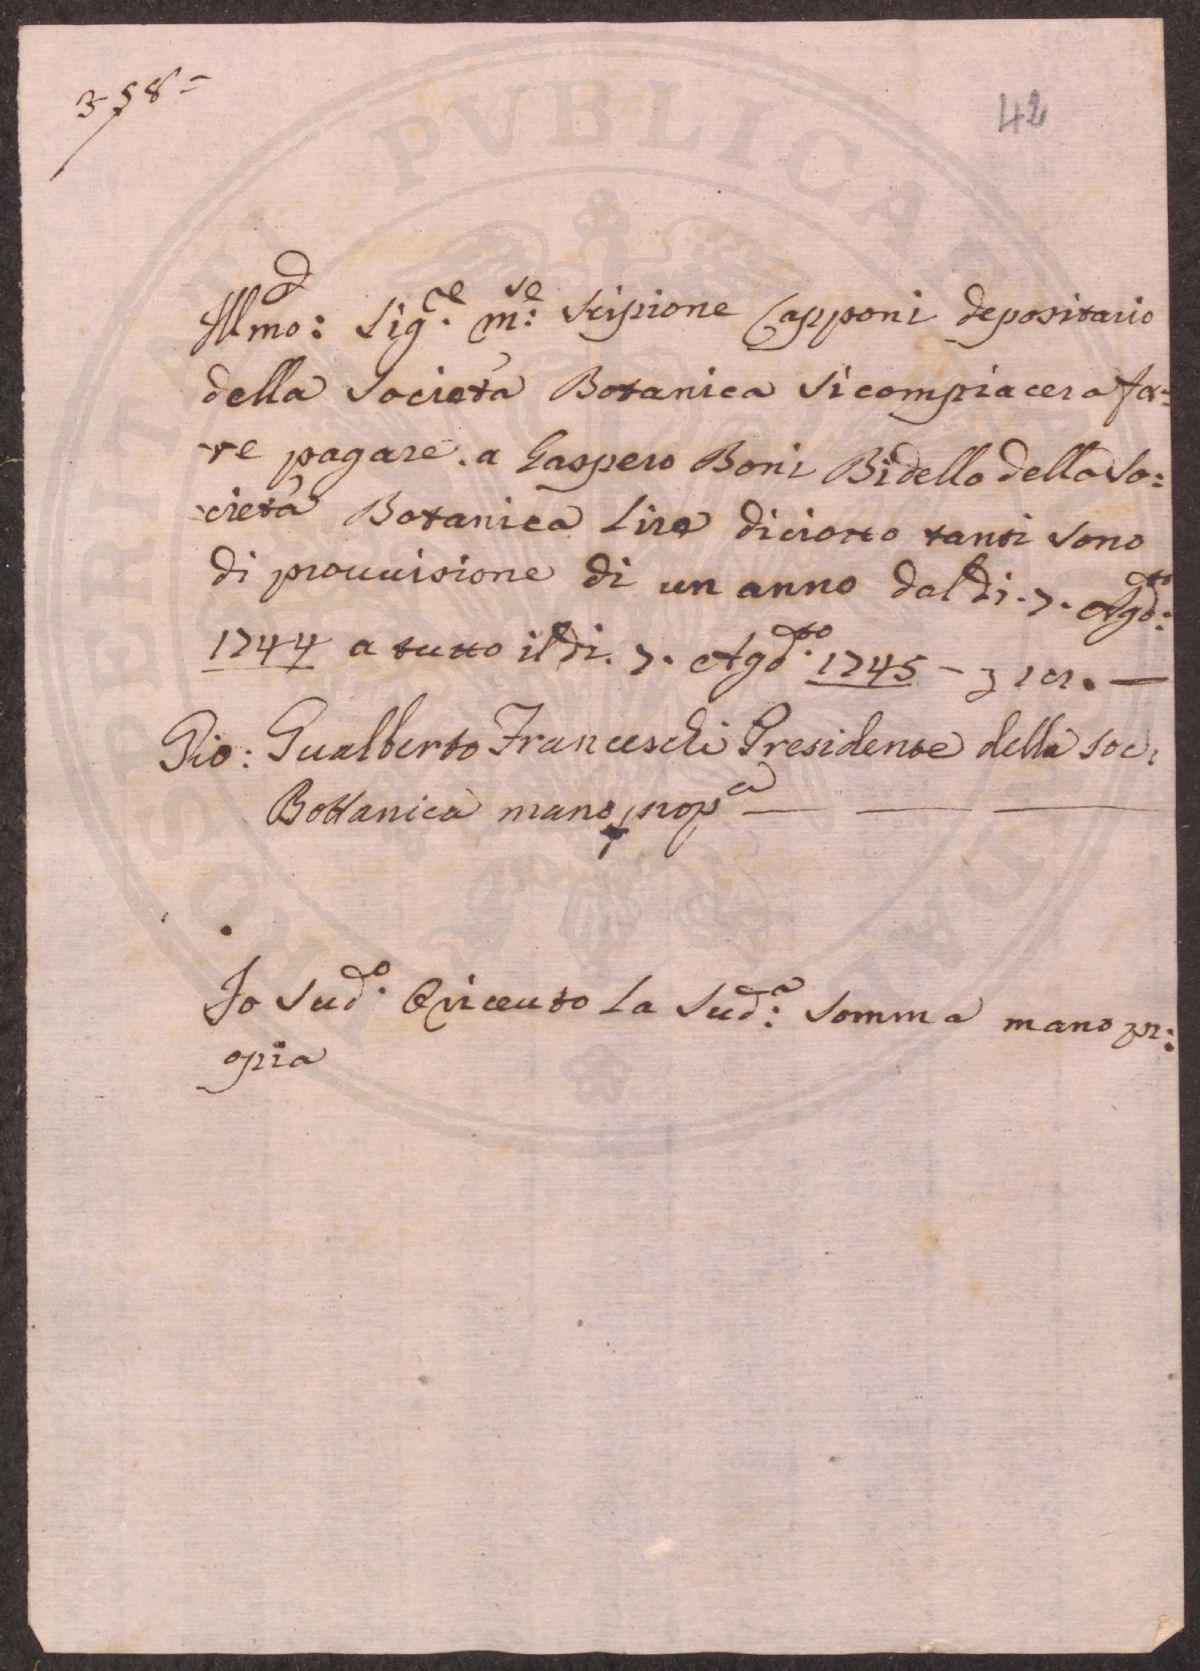 358=
42
Illmo: Sig.re m:se Scipione Capponi depositario
della Società Botanica si compiacera fa=
re pagare. a Gaspero Boni Bidello della So:
cietà Botanica Lire diciotto tanti sono
di prouuisione di un anno dal di. 7. Agō:sto
1744 a tutto il di. 7. Agō.sto 1745 -
Gio: Gualberto Franceschi Presidente della Soc:
Bottanica mano prop.a
Io Sud.o Riceuto la Sud:a Somma mano pr:
opria
PVBLICAE